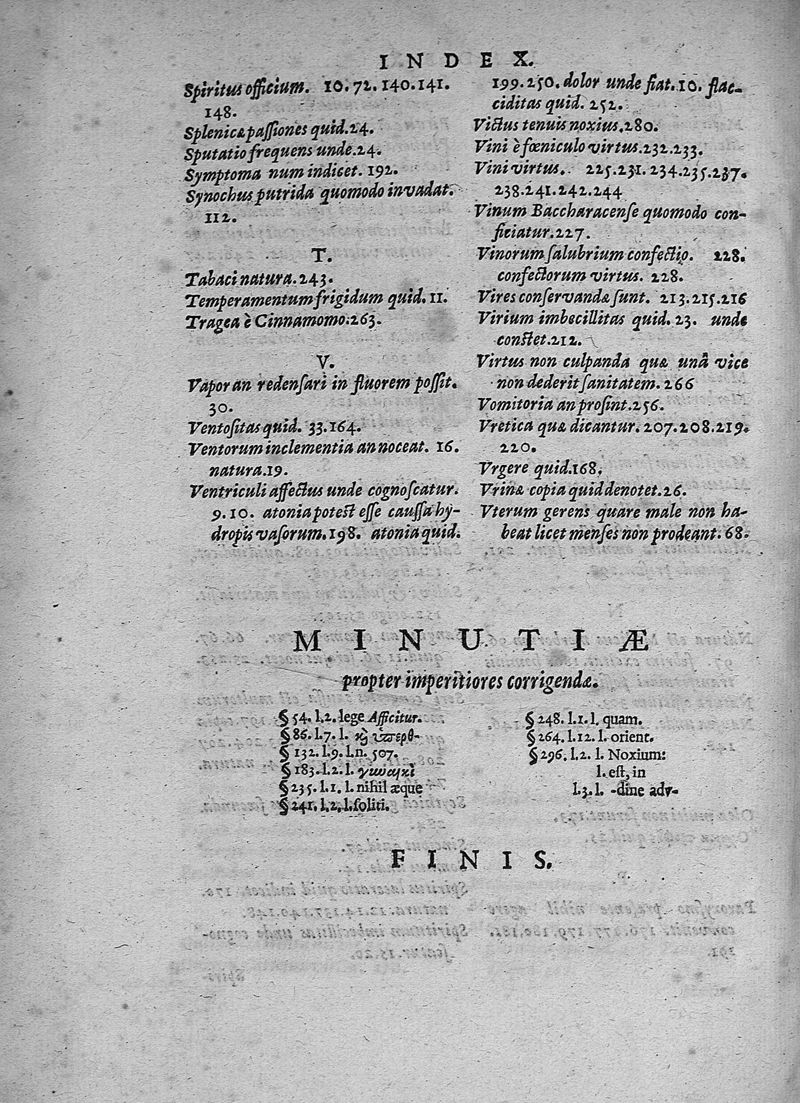 INDEX.
Spiritus officium. 10.72.140.141.
148.
Splenicæ paſſiones quid.24.
Sputatio frequens unde.24.
Symptoma num indicet. 192.
Synochus putrida quomodo invadat.
112.
T.
Tabaci natura.243.
Temperamentum frigidum quid. 11.
Tragea è Cinnamomo.263.
V.
Vapor an redenſari in fluorem poſſit.
30.
Ventoſitas quid. 33.164.
Ventorum inclementia an noceat. 16.
natura.19.
Ventriculi affectus unde cognoſcatur.
9.10. atonia poteſt eſſe cauſſa hy-
dropis vaſorum.198. atonia quid.
199.250. dolor unde fiat.10. flac-
ciditas quid. 252.
Victus tenuis noxius.280.
Vini è fœniculo virtus.232.233.
Vini virtus. 225.231.234.235.237.
238.241.242.244
Vinum Baccharacenſe quomodo con-
ficiatur.227.
Vinorum ſalubrium confectio. 228.
confectorum virtus. 228.
Vires conſervandæ ſunt. 213.215.216
Virium imbecillitas quid. 23. unde
conſtet.212.
Virtus non culpanda quæ unâ vice
non dederit ſanitatem.266
Vomitoria an proſint.256.
Vretica quæ dicantur. 207.208.219.
220.
Vrgere quid.168.
Vrinæ copia quid denotet.26.
Vterum gerens quare male non ha-
beat licet menſes non prodeant.68.
MINUTIÆ
propter imperitiores corrigendæ.
§ 54. l.2. lege Afficitur.
§ 86. l.7. l. ϗ ὑπερθ-
§ 132. l.9. l.n. 507.
§ 183. l.2. l. γυναικὶ
§ 235. l.1. l. nihil æque
§ 241. l.2. l. ſoliti.
§ 248. l.1. l. quam.
§ 264. l.12. l. orient.
§ 296. l.2. l. Noxium:
l. eſt, in
l.3. l. -dine adv-
FINIS.